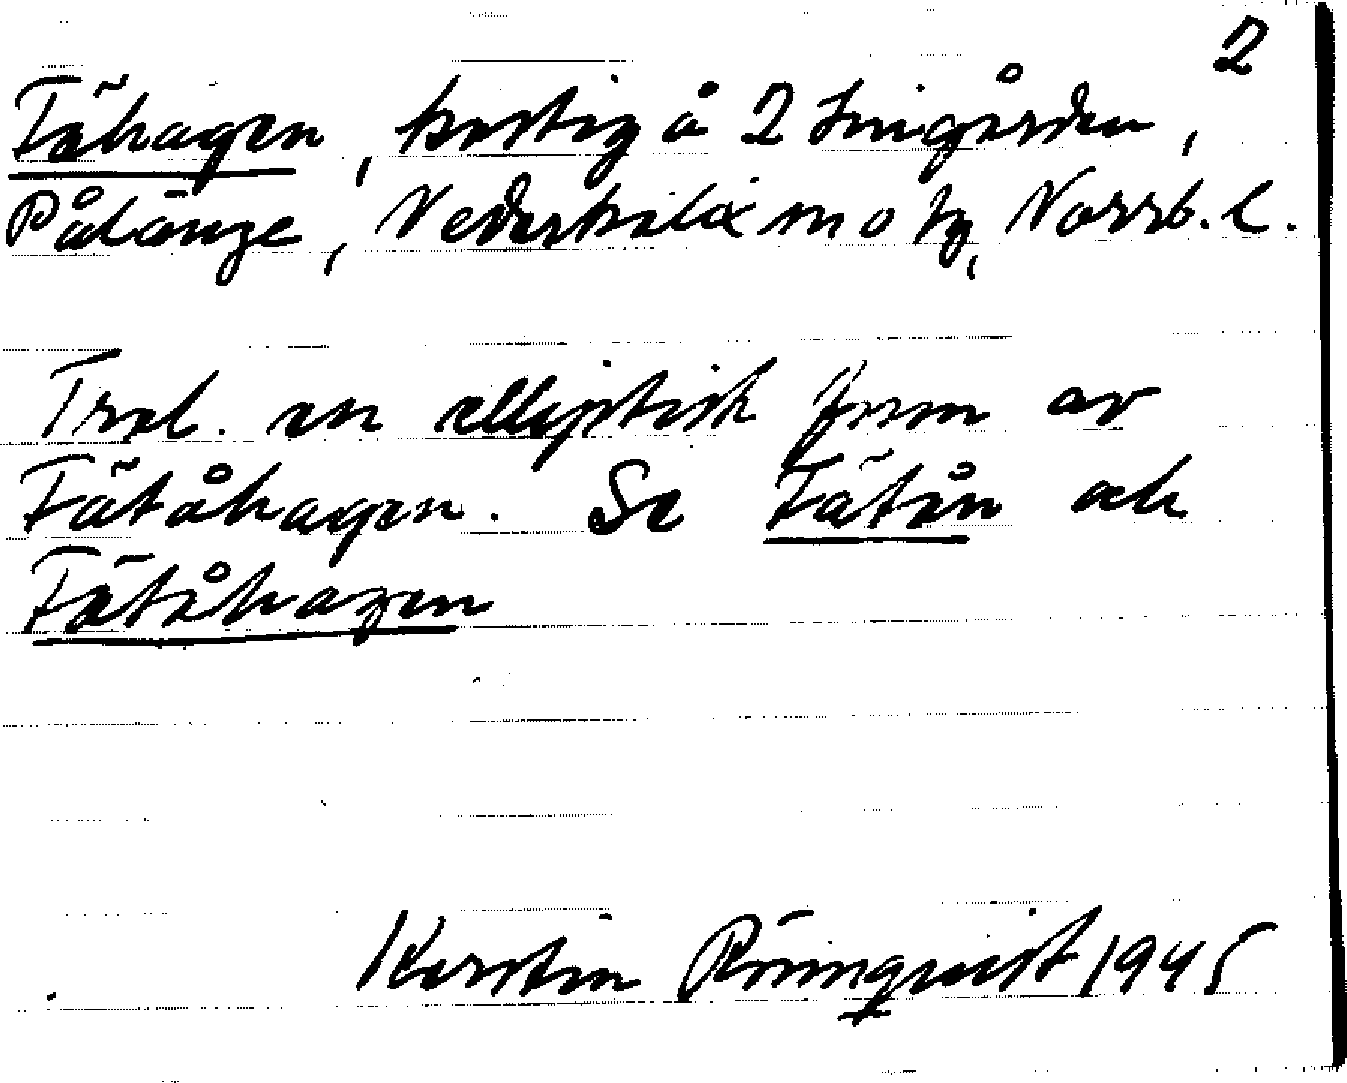 2
Fähagen, kostig å 2 Smigården,
Pålänge, Nederkalix sn o tg, Norrb. l.
Trol. en elliptisk form av
Fätåhagen. Se Fätån och
Fätåhagen
Kerstin Rönnquist 1945